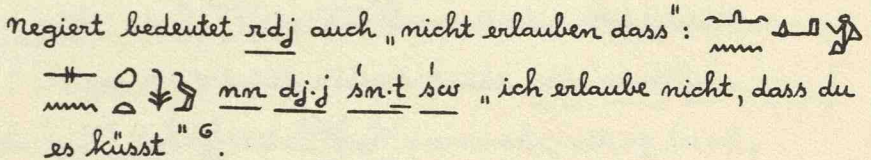 negiert bedeutet rdj auch „nicht erlauben dass":
nn dj·j śn·t św „ich erlaube nicht, dass du
es küsst" 6.